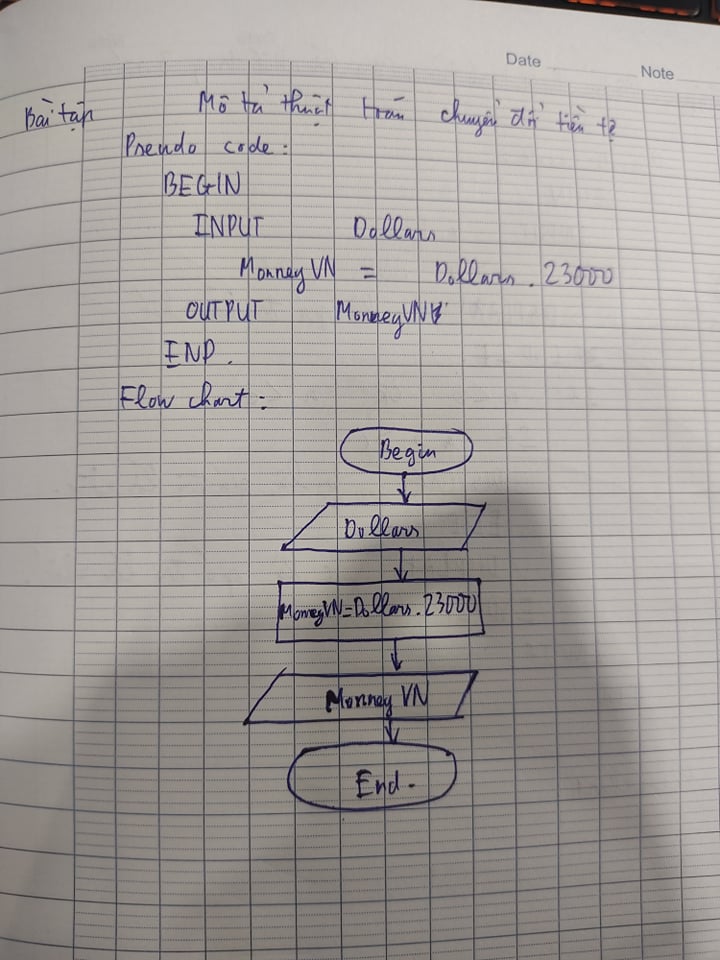 Date
Note
Bài tập
Mô tả thuật toán chuyển đổi tiền tệ
Pseudo code :
BEGIN
INPUT Dollars
MonneyVN = Dollars . 23000
OUTPUT MonneyVN
END .
Flow chart :
Begin
Dollars
MonneyVN=Dollars . 23000
Monney VN
End .